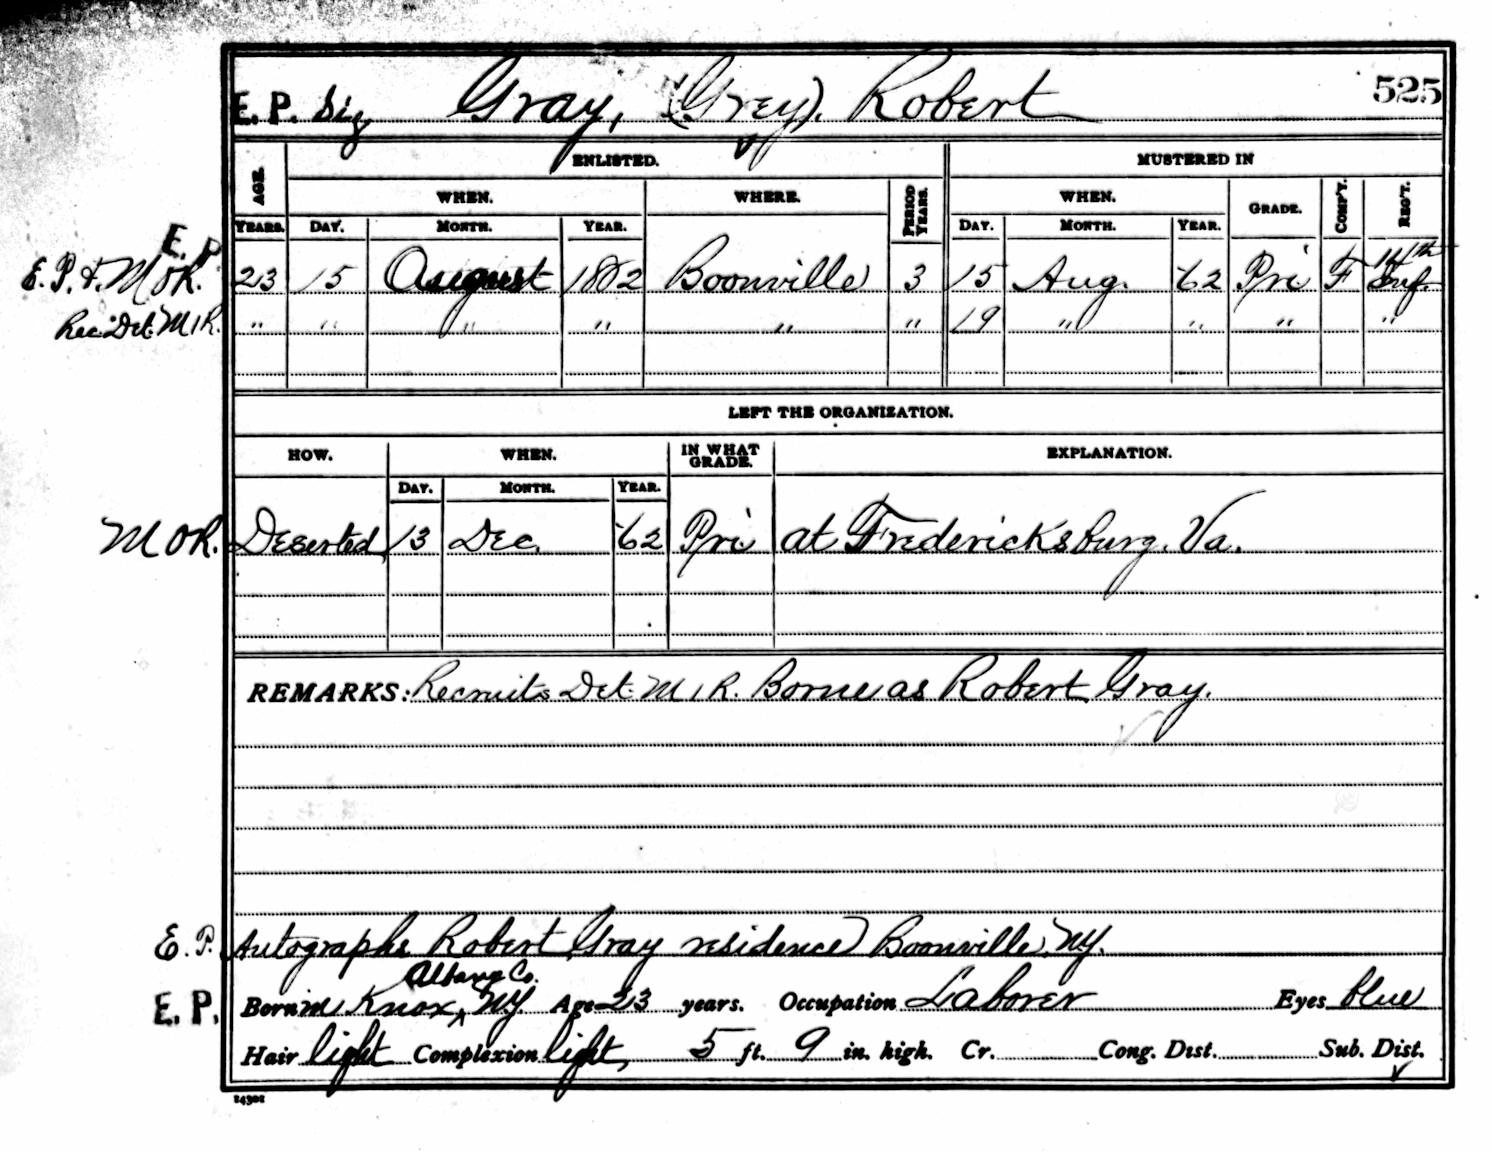 E.P. sig Gray, (Grey). Robert 525
ENLISTED. MUSTERED IN
AGE. WHEN. WHERE. PERIOD YEARS. WHEN. GRADE. COMP'Y. REG'T.
YEARS. DAY. MONTH. YEAR. DAY. MONTH. YEAR.
E.P.
E.P. & M O R. 23 15 August 1862 Boonville 3 15 Aug. '62 Pri F Inf.
Rec. Det. M I R. " " " " " " 19 " " " "
LEFT THE ORGANIZATION.
HOW. WHEN. IN WHAT GRADE. EXPLANATION.
DAY. MONTH. YEAR.
M O R. Deserted 13 Dec. '62 Pri at Fredericksburg. Va.
REMARKS: Recruits Det. M I R. Borne as Robert Gray.
E.P. Autographs Robert Gray residence Boonville, N.Y.
Albany Co.
E.P. Born in Knox, ^ N.Y. Age 23 years. Occupation Laborer Eyes blue
Hair light Complexion light, 5 ft. 9 in. high. Cr. Cong. Dist. Sub. Dist.
24302